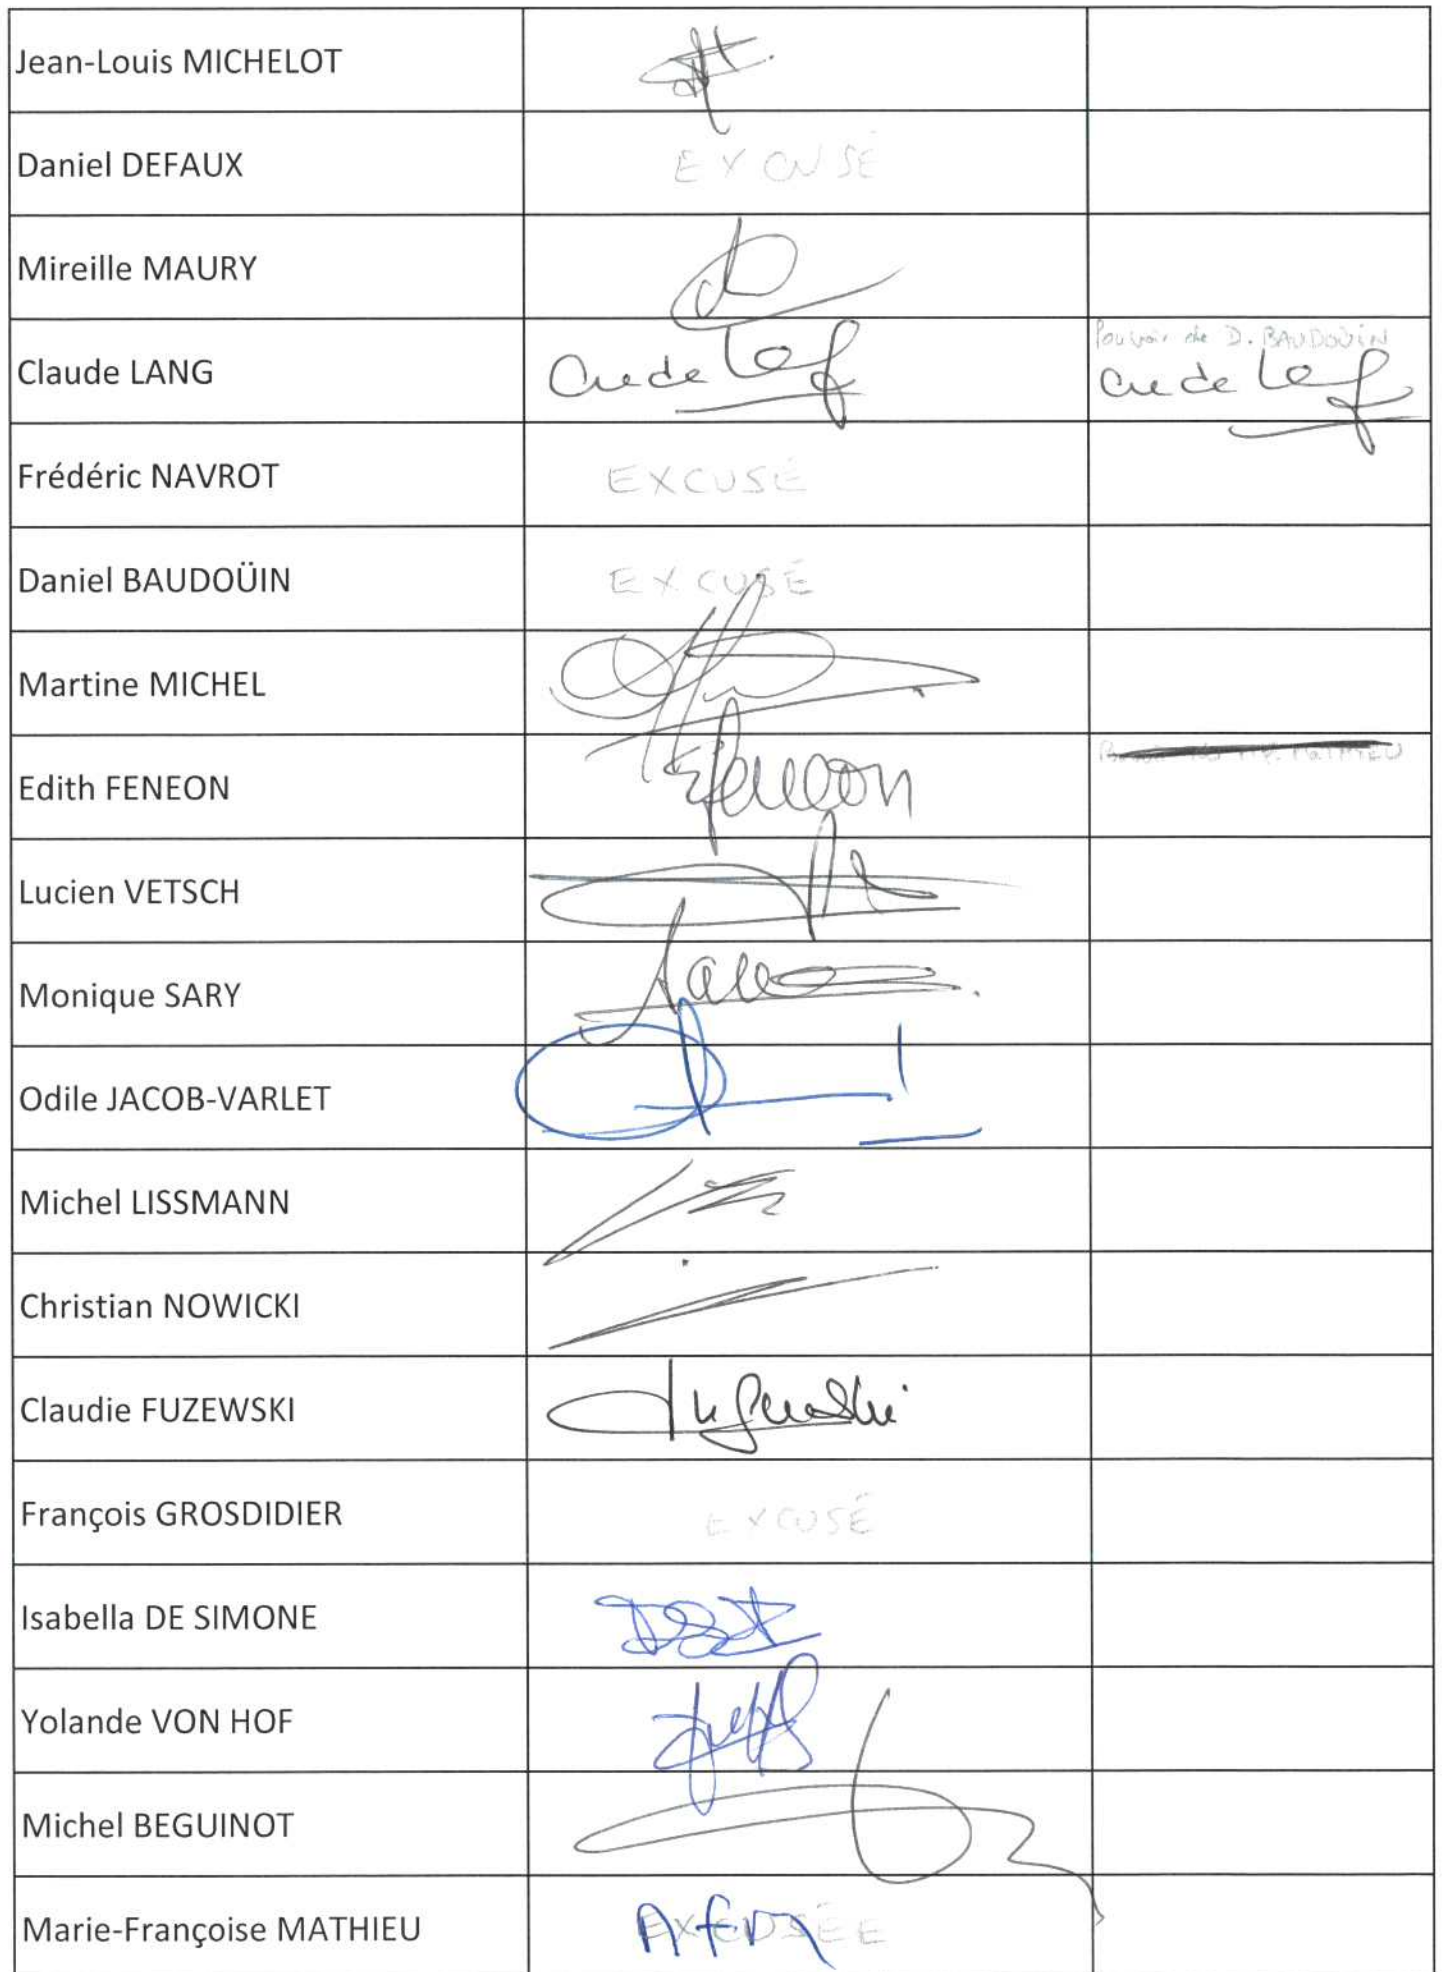 Jean-Louis MICHELOT
Daniel DEFAUX
EXCUSÉ
Mireille MAURY
Pouvoir de D. BAUDOÜIN
Claude LANG
Frédéric NAVROT
EXCUSÉ
Daniel BAUDOÜIN
EXCUSÉ
Martine MICHEL
MATHIEU
Edith FENEON
Efeneon
Lucien VETSCH
Monique SARY
Odile JACOB-VARLET
Michel LISSMANN
Christian NOWICKI
Claudie FUZEWSKI
François GROSDIDIER
EXCUSÉ
Isabella DE SIMONE
Yolande VON HOF
Michel BEGUINOT
Marie-Françoise MATHIEU
EXCUSÉE